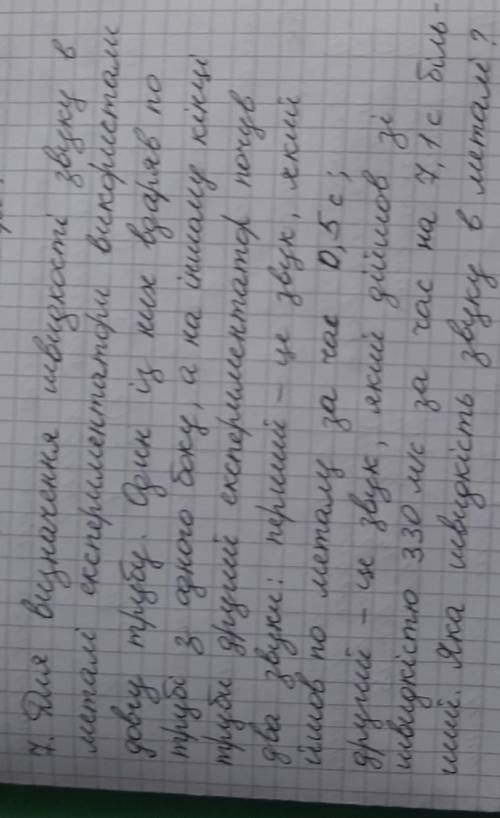 7. Для визначення швидкості звуку в
металі експериментатори використали
довгу трубу. Один із них вдаряв по
трубі з одного боку, а на іншому кінці
труби другий експериментатор почув
два звуки: перший - це звук, який
йшов по металу за час 0,5 с;
другий - це звук, який дійшов зі
швидкістю 330 м/с за час на 7,1 с біль-
ший. Яка швидкість звуку в металі?